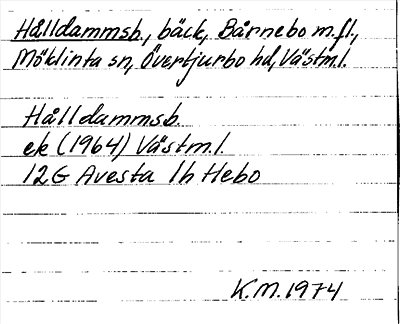 Hålldammsb., bäck, Bårnebo m.fl.,
Möklinta sn, Övertjurbo hd, Västml.
Hålldammsb.
ek (1964) Västml.
12G Avesta 1h Hebo
K.M. 1974